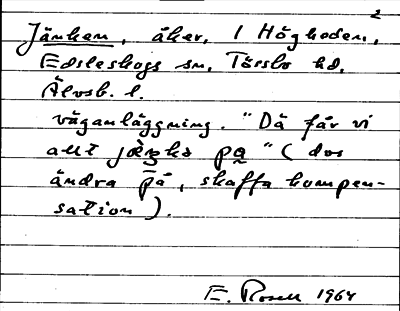 2
Jänken, åker, i Högheden,
Edsleskogs sn, Tössbo hd,
Älvsb. l.
väganläggning. "Då får vi
allt jänka på" (dvs
ändra på, skaffa kompen-
sation).
E. Rosell 1964